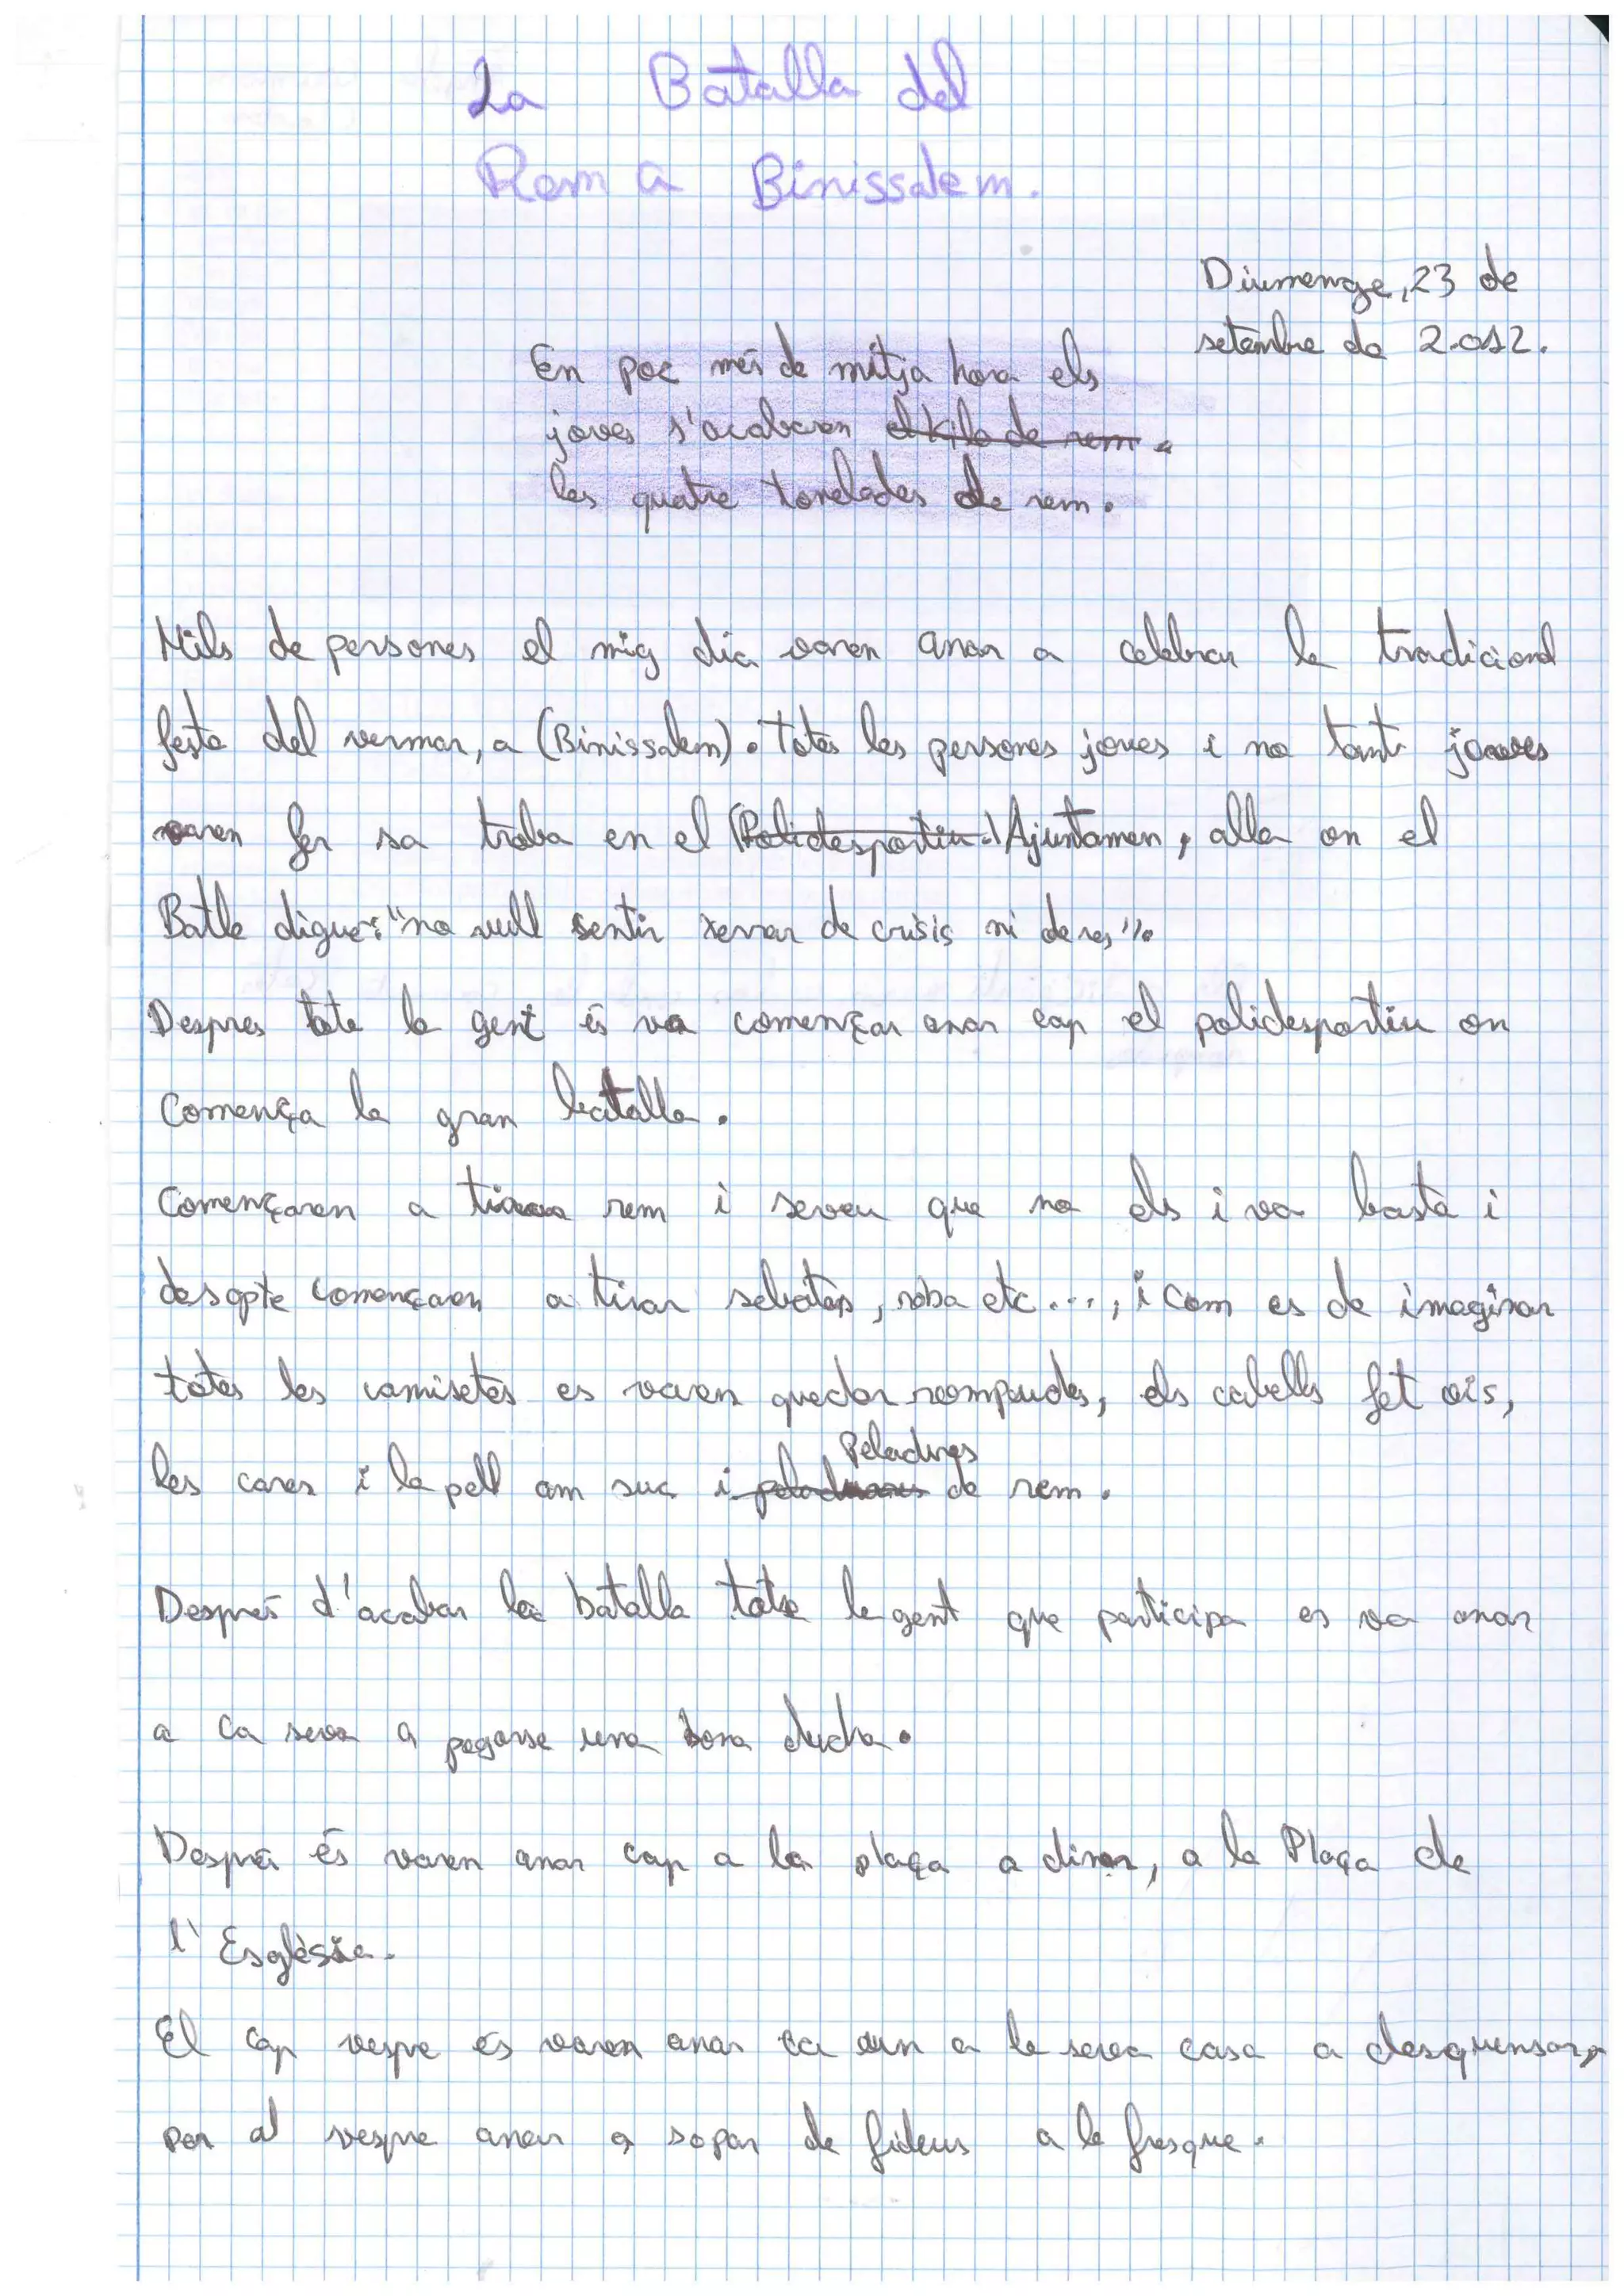 La Batalla del
Rem a Binissalem.
Diumenge, 23 de
setembre de 2.012.
En poc més de mitja hora els
joves s'acabaren el kilo de rem.
les quatre tonelades de rem.
Mils de persones el mig dia varen anar a celebrar la tradicional
festa del vermar, a (Binissalem). Totes les persones joves i no tant joves
varen fer sa troba en el (Polidesportiu.) Ajuntamen, alla on el
Batle digue: "no vull sentir xerrar de crisis ni de res".
Despres tota la gent és va començar anar cap el polidesportiu on
Comença la gran batalla.
Començaren a tirar rem i seveu que no els i va basta i
desopte començaren a tirar sebates, roba etc..., i com es de imaginar
totes les camisetes es varen quedar rompudes, els cabells fet ois,
les cares i la pell am suc i Peladures de rem.
Després d'acabar la batalla tota la gent que participa es va anar
a ca seva a pegarse una bona ducha.
Després és varen anar cap a la plaça a dinar, a la Plaça de
l'Esglèsia.
El cap vespre és varen anar ca un a la seva casa a desquensar,
per al vespre anar a sopar de fideus a la fresque.